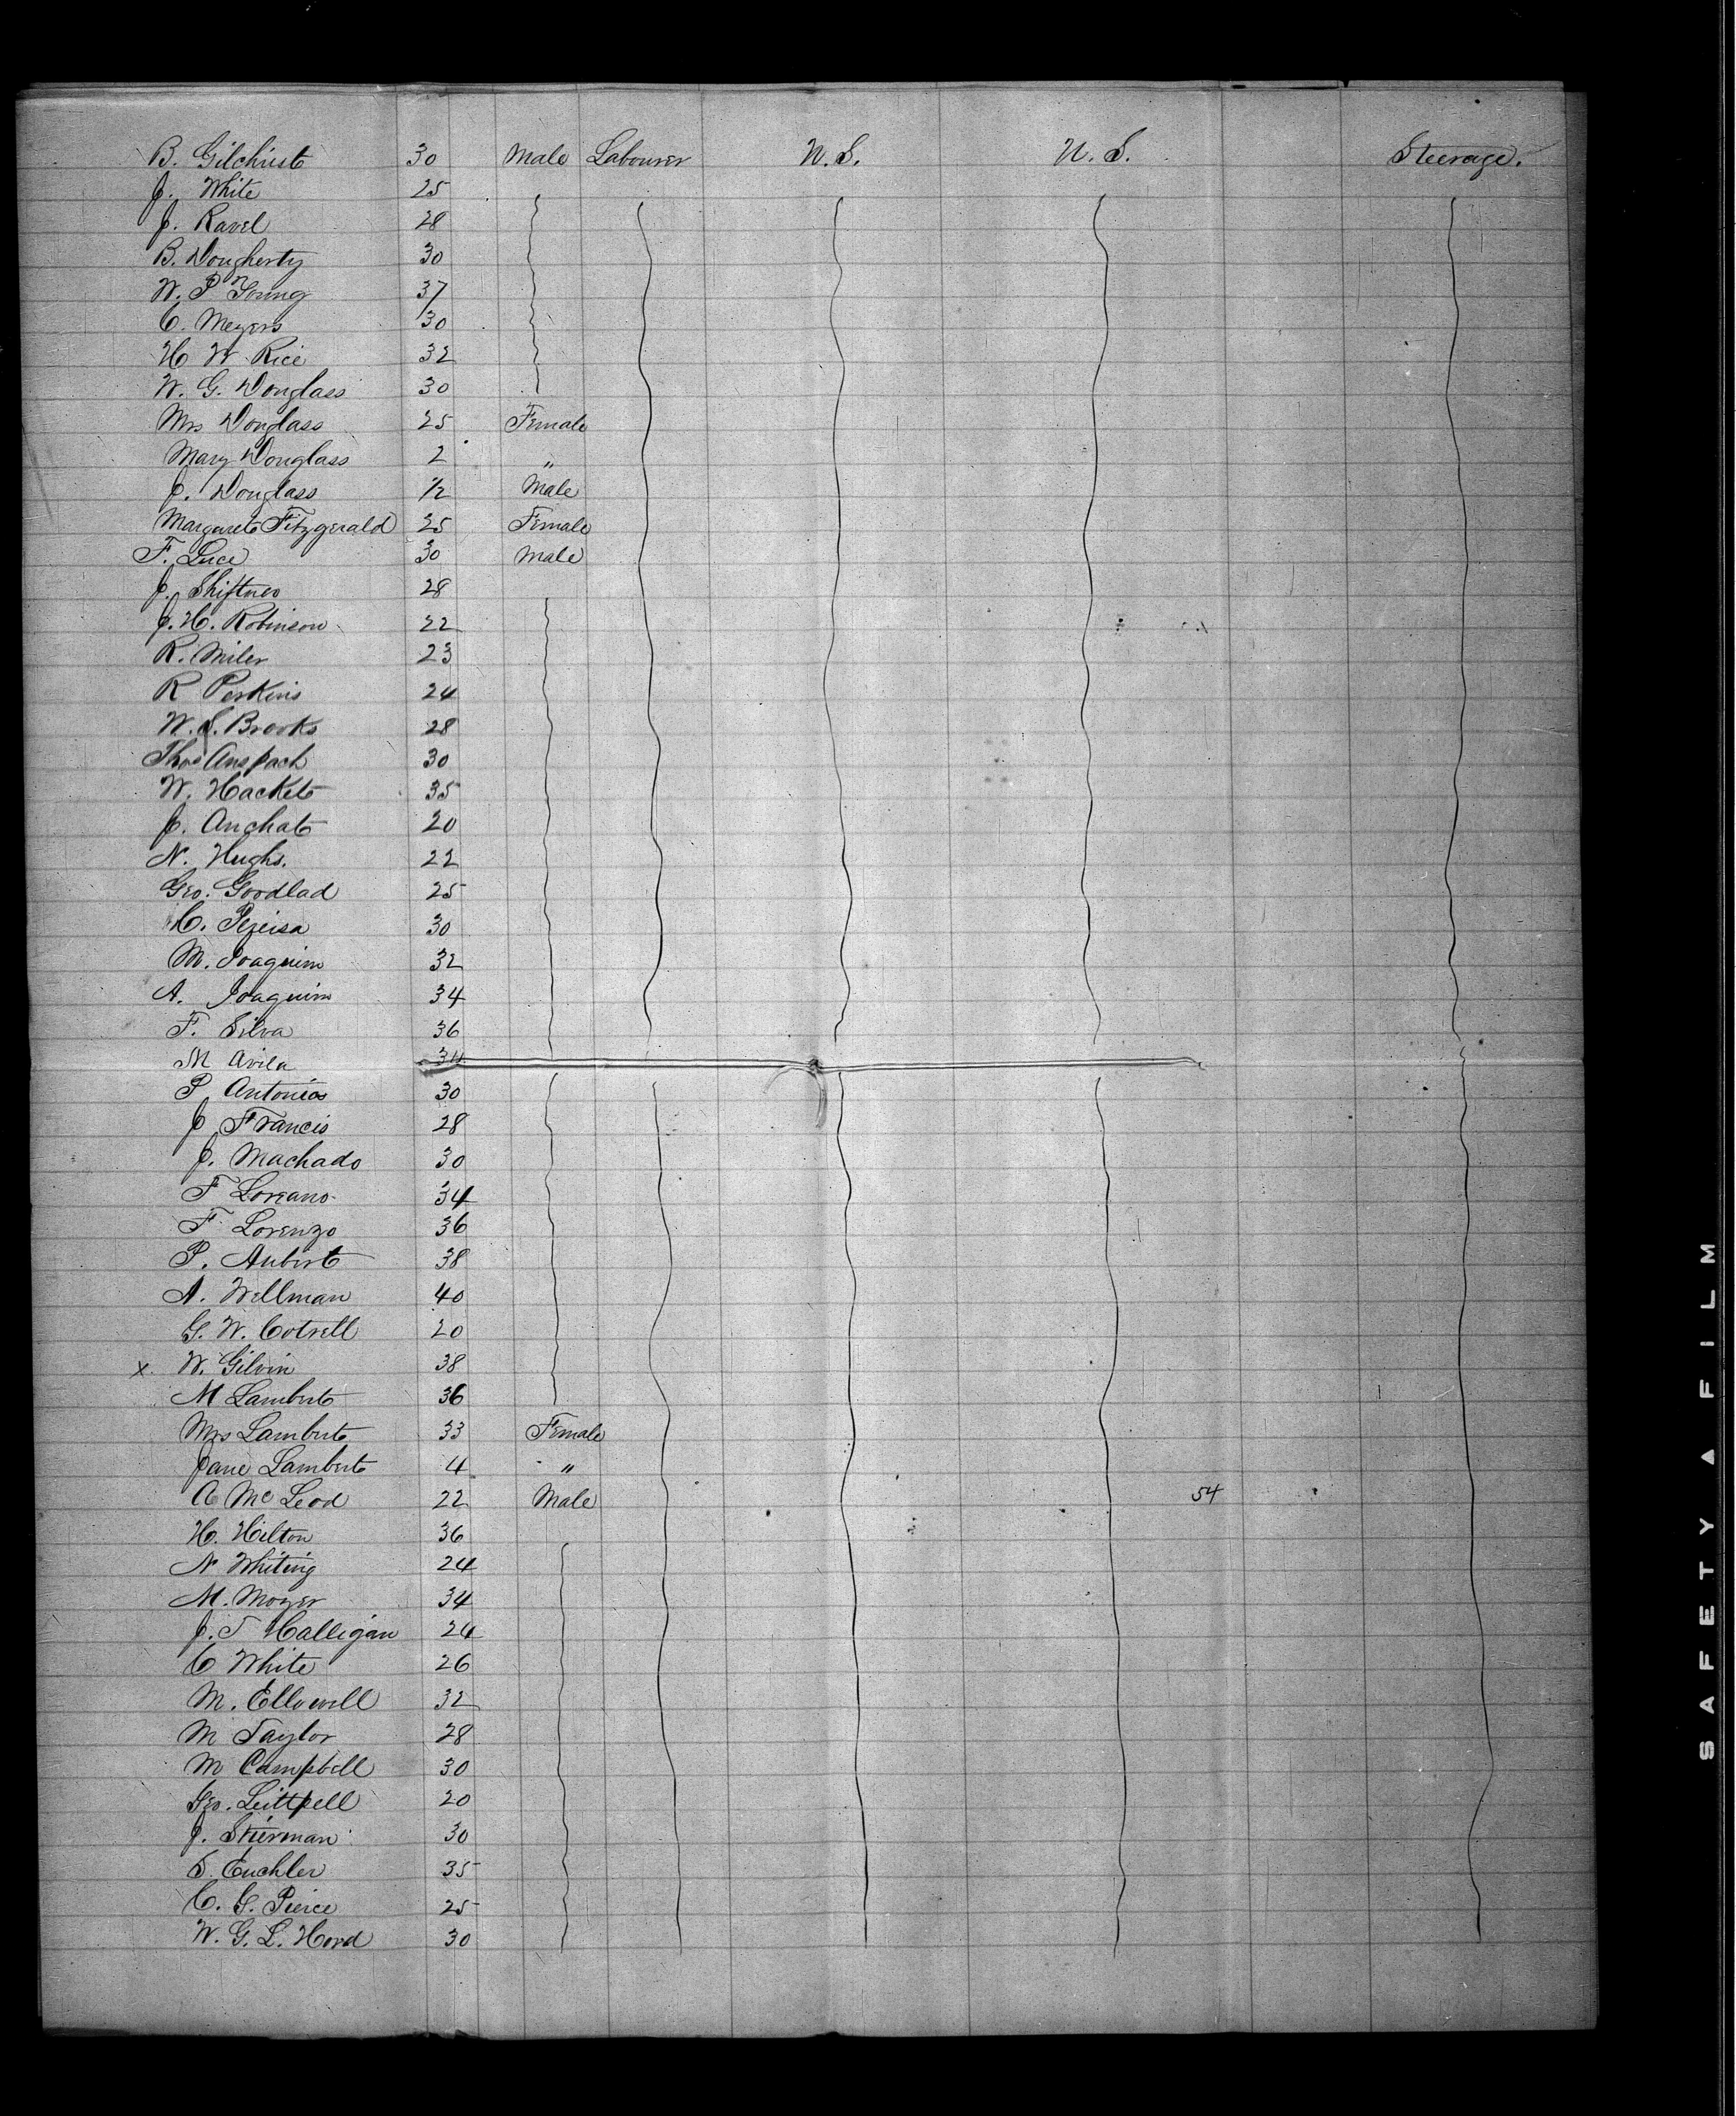 B. Gilchrist 30 Male Labourer U.S. U.S. Steerage.
J. White 25
J. Ravel 28
B. Dougherty 30
W. P Young 37
C. Meyers 30
H W Rice 32
W. G. Douglass 30
Mrs Douglass 25 Female
Mary Douglass 2 "
J. Douglass 1/2 Male
Margaret Fitzgerald 25 Female
F. Luce 30 Male
J. Shiftner 28
J. H. Robinson 22
R. Miler 23
R Perkins 24
W. S. Brooks 28
Thos Anspach 30
W. Hacket 35
J. Anchat 20
N. Hughs. 22
Geo. Goodlad 25
C. 30
M. Joaquim 32
A. Joaquim 34
F. Silva 36
M Avila 34
P Antonios 30
J Francis 28
J. Machado 30
F Loreano 34
F. Lorenzo 36
P. Aubert 38
A. Wellman 40
G. W. Cotrell 20
x W. Gilvin 38
M Lambert 36
Mrs Lambert 33 Female
Jane Lambert 4 "
A McLeod 22 Male 54
H. Hilton 36
N Whiting 24
M. Moyer 34
J. T Halligan 24
C White 26
M. Ellowell 32
M Taylor 28
M Campbell 30
Geo. Leittpell 20
J. Stierman 30
S. Euchler 35
C. G. Pierce 25
W. G. L. Hord 30
SAFETY ▲ FILM